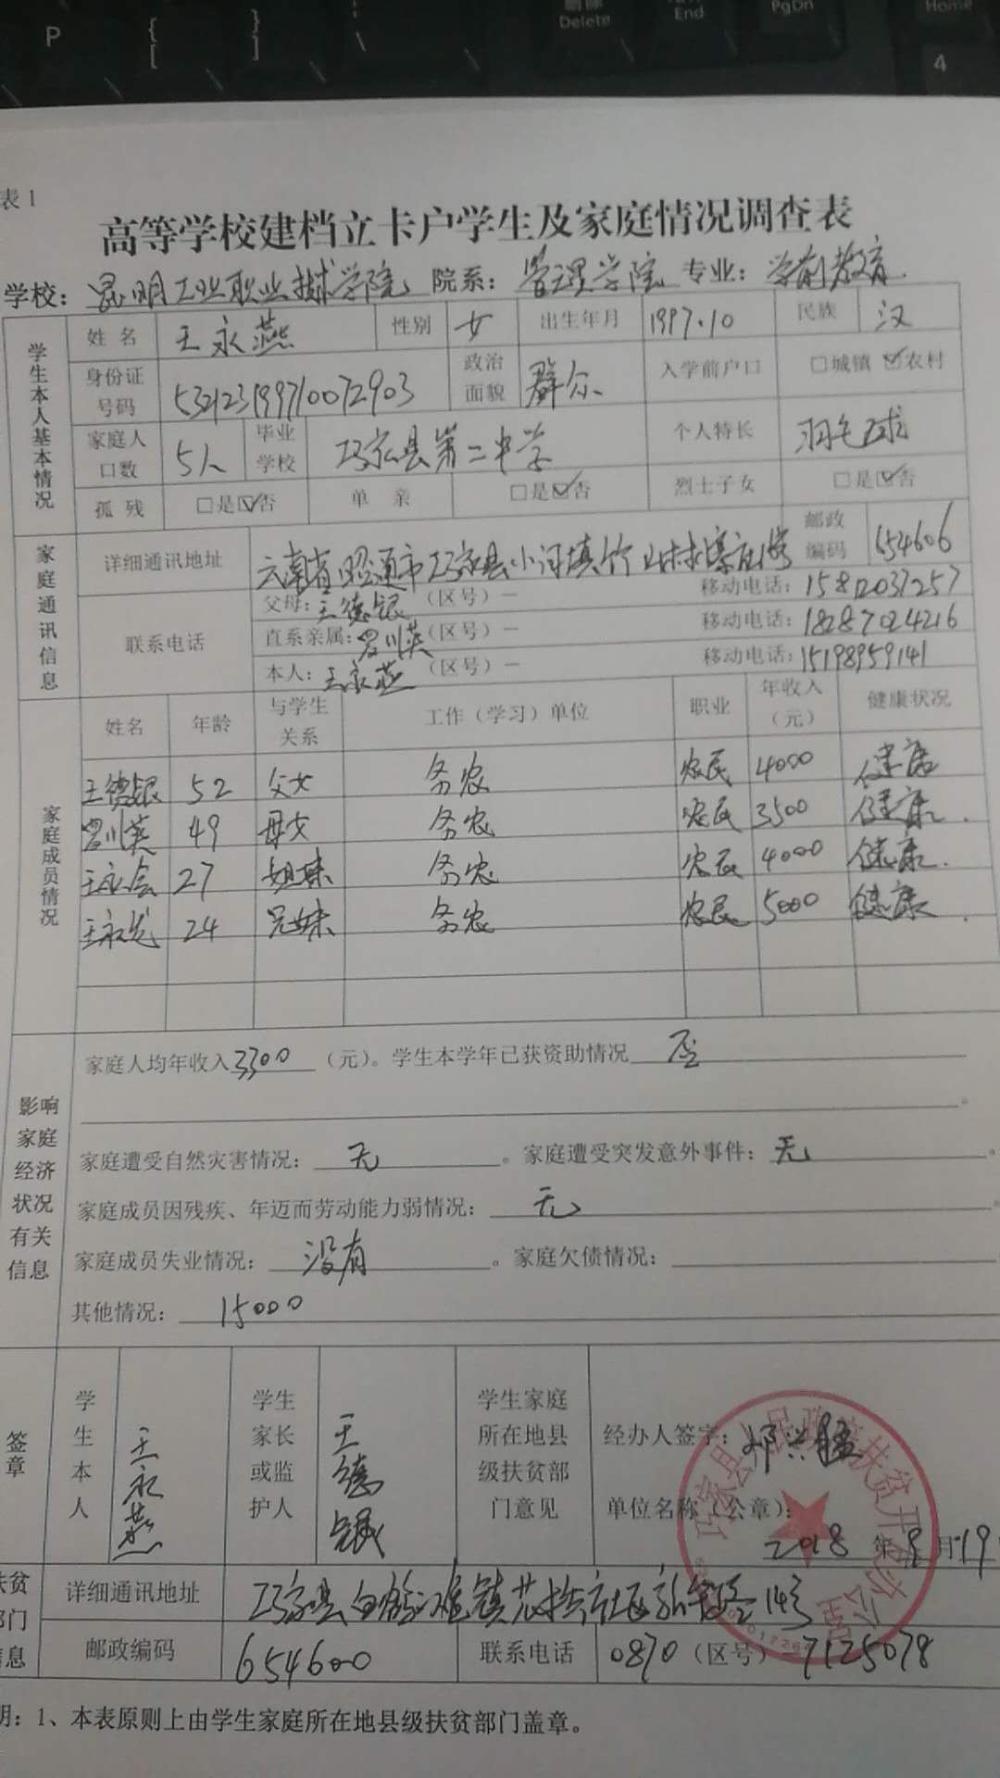 P
{
[
}
]
|
\
Delete
End
PgDn
Home
4
表1
高等学校建档立卡户学生及家庭情况调查表
学校：昆明工业职业技术学院 院系：管理学院 专业：学前教育
学生本人基本情况
姓名 王永燕 性别 女 出生年月 1997.10 民族 汉
身份证号码 532123199710072903 政治面貌 群众 入学前户口 □城镇 ☑农村
家庭人口数 5人 毕业学校 巧家县第二中学 个人特长 羽毛球
孤残 □是☑否 单亲 □是☑否 烈士子女 □是☑否
家庭通讯信息
详细通讯地址 云南省昭通市巧家县小河镇竹山村 邮政编码 654606
联系电话 父母：王德银（区号）－ 移动电话：15812037257
直系亲属：罗川英（区号）－ 移动电话：18287024216
本人：王永燕（区号）－ 移动电话：15198959141
家庭成员情况
姓名 年龄 与学生关系 工作（学习）单位 职业 年收入（元） 健康状况
王德银 52 父女 务农 农民 4000 健康
罗川英 49 母女 务农 农民 3500 健康.
王永会 27 姐妹 务农 农民 4000 健康.
王永 24 兄妹 务农 农民 5000 健康.
影响家庭经济状况有关信息
家庭人均年收入3300（元）。学生本学年已获资助情况 否
。
家庭遭受自然灾害情况：无。家庭遭受突发意外事件：无。
家庭成员因残疾、年迈而劳动能力弱情况：无。
家庭成员失业情况：没有。家庭欠债情况：
其他情况：15000
签章
学生本人 王永燕 学生家长或监护人 王德银 学生家庭所在地县级扶贫部门意见
经办人签字：邓兴
单位名称（公章）：
2018年9月19
巧家县人民政府扶贫开发办公室
扶贫部门信息
详细通讯地址 巧家县白鹤滩镇 社区 14号
邮政编码 654600 联系电话 0870（区号）－7125078
明：1、本表原则上由学生家庭所在地县级扶贫部门盖章。